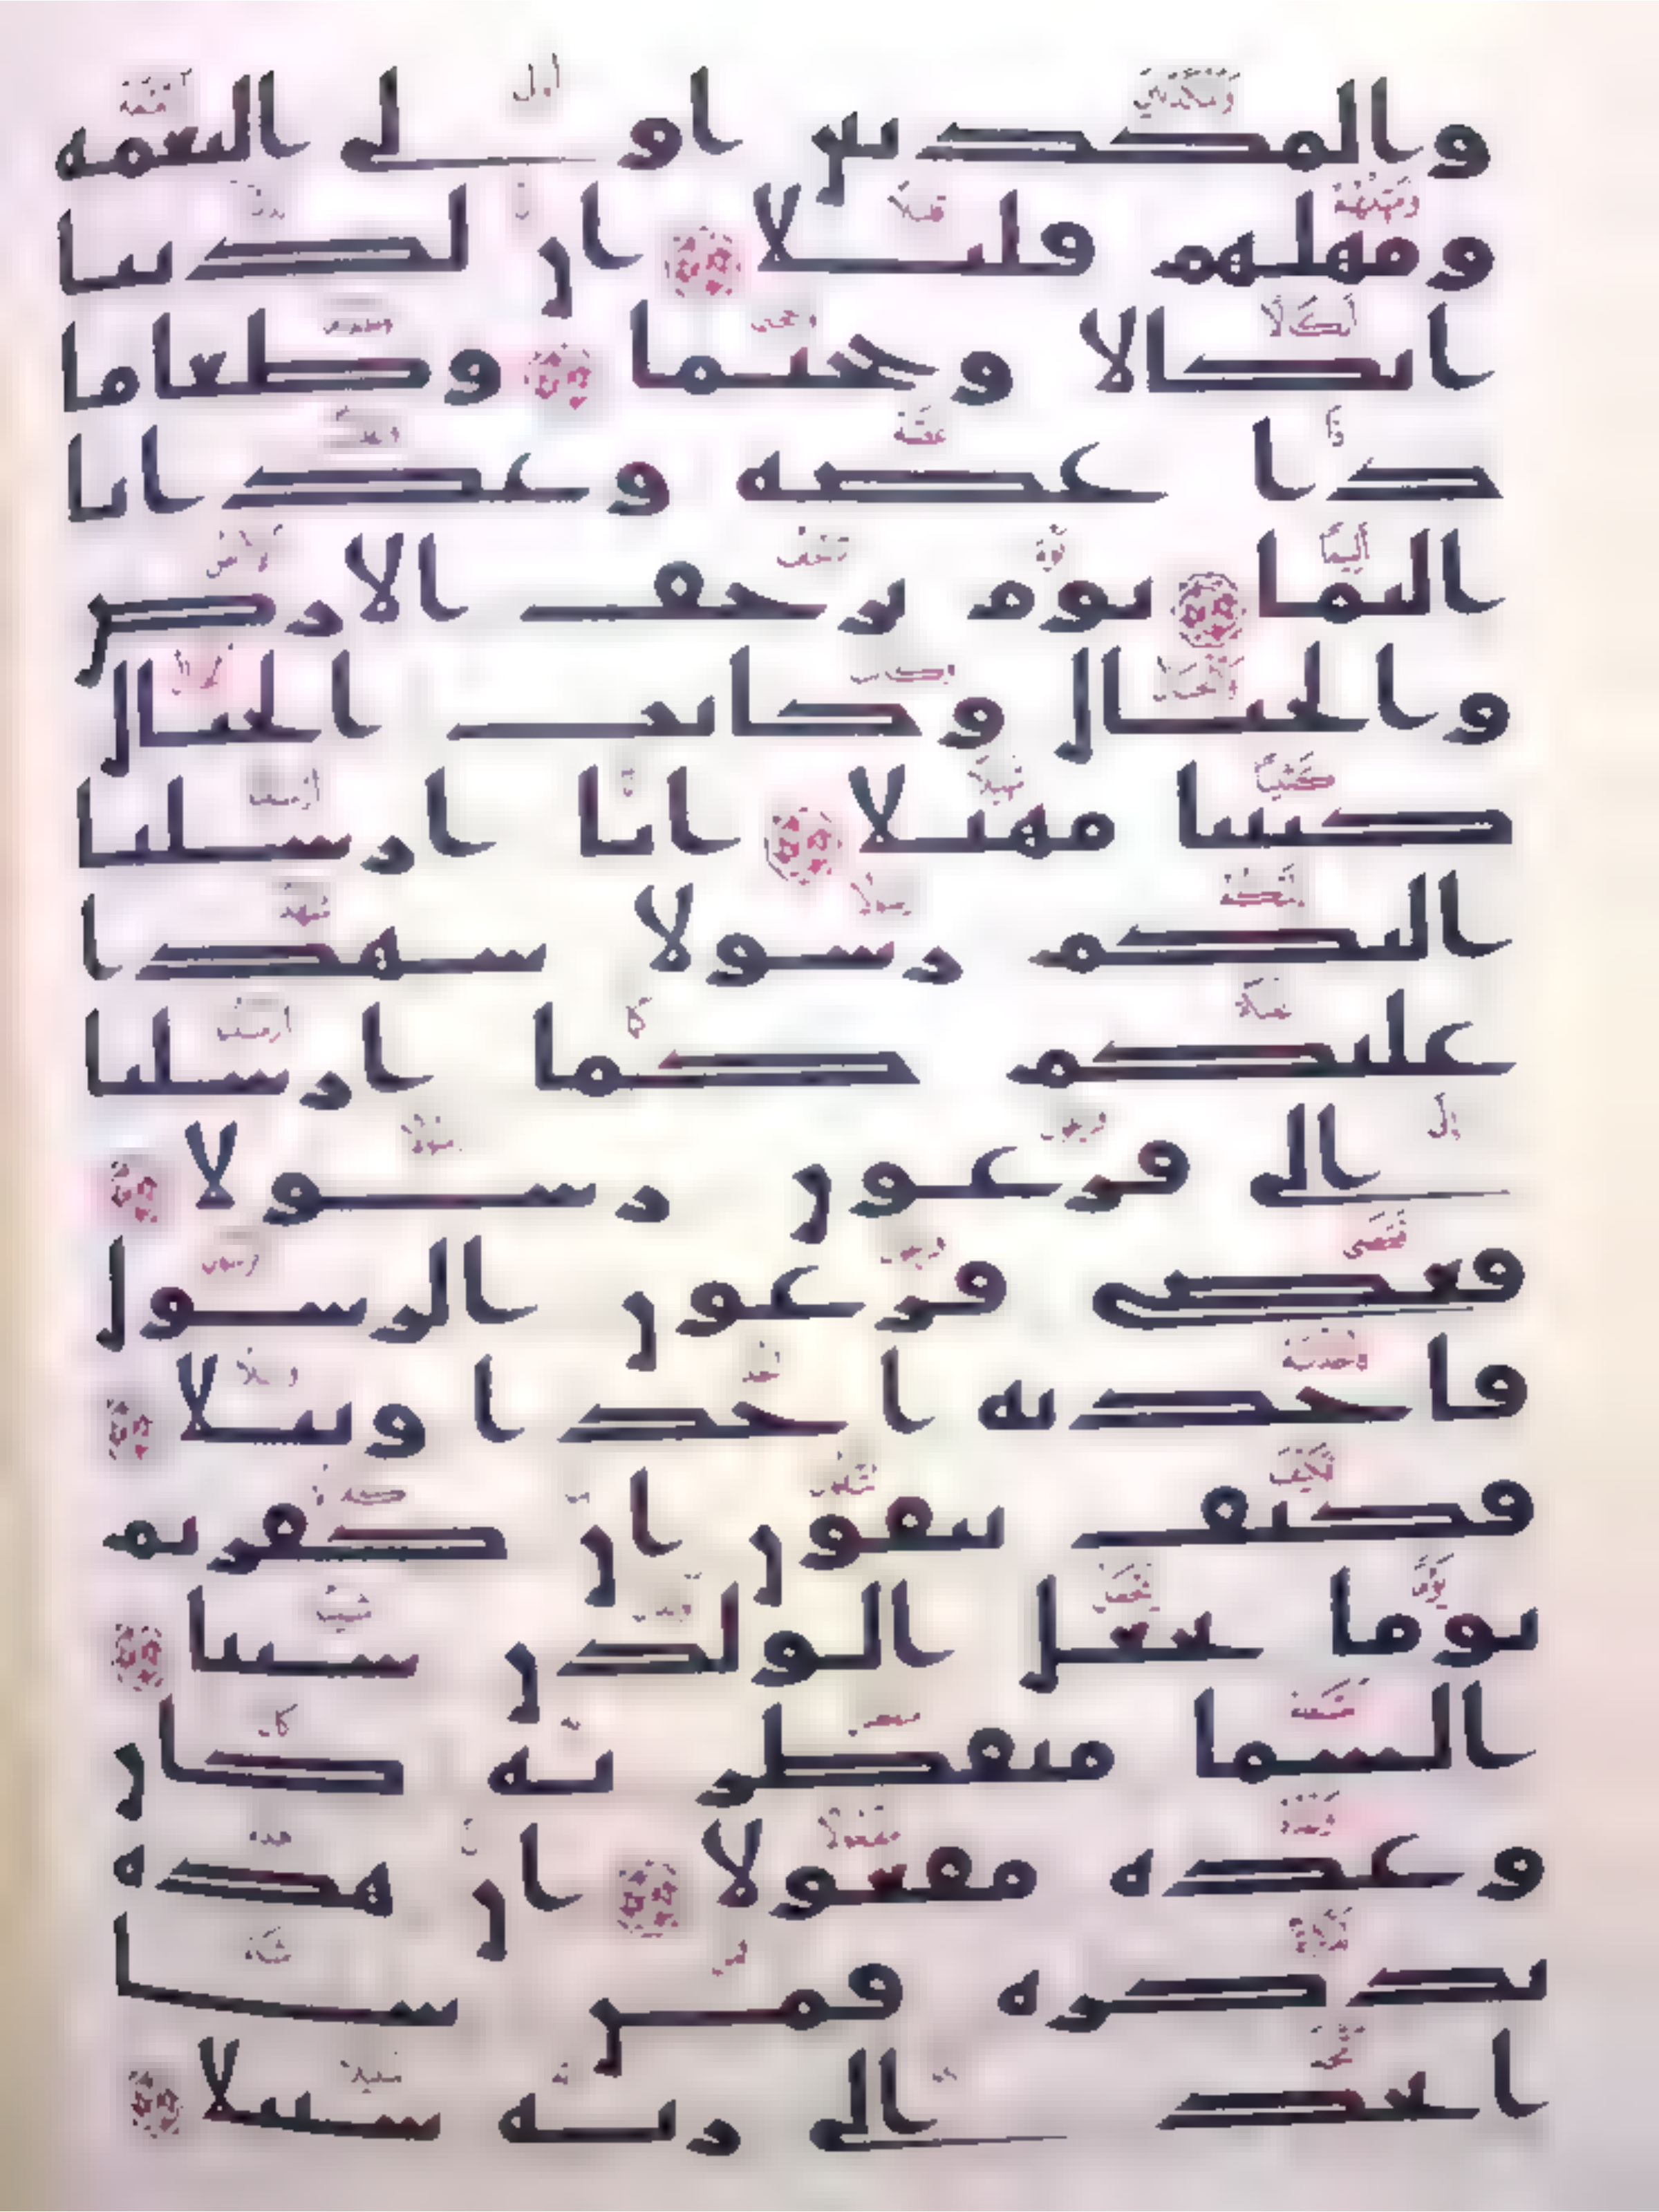 والمكذبين اولي النعمة
ومهلهم قليلا ان لدينا
انكالا وجحيما وطعاما
ذا غصة وعذابا
اليما يوم ترجف الارض
والجبال وكانت الجبال
كثيبا مهيلا انا ارسلنا
اليكم رسولا شهدا
عليكم كما ارسلنا
الى فرعون رسولا
فعصى فرعون الرسول
فاخذنه اخذا وبيلا
فكيف تتقون ان كفرتم
يوما يجعل الولدن شيبا
السما منفطر به كان
وعده مفعولا ان هذه
تذكرة فمن شا
اتخذ الى ربه سبيلا